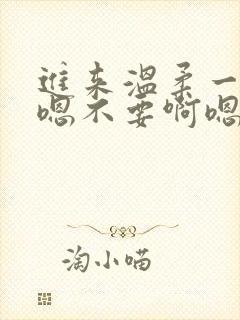 進来温柔一
嗯不要啊嗯
淘小喵